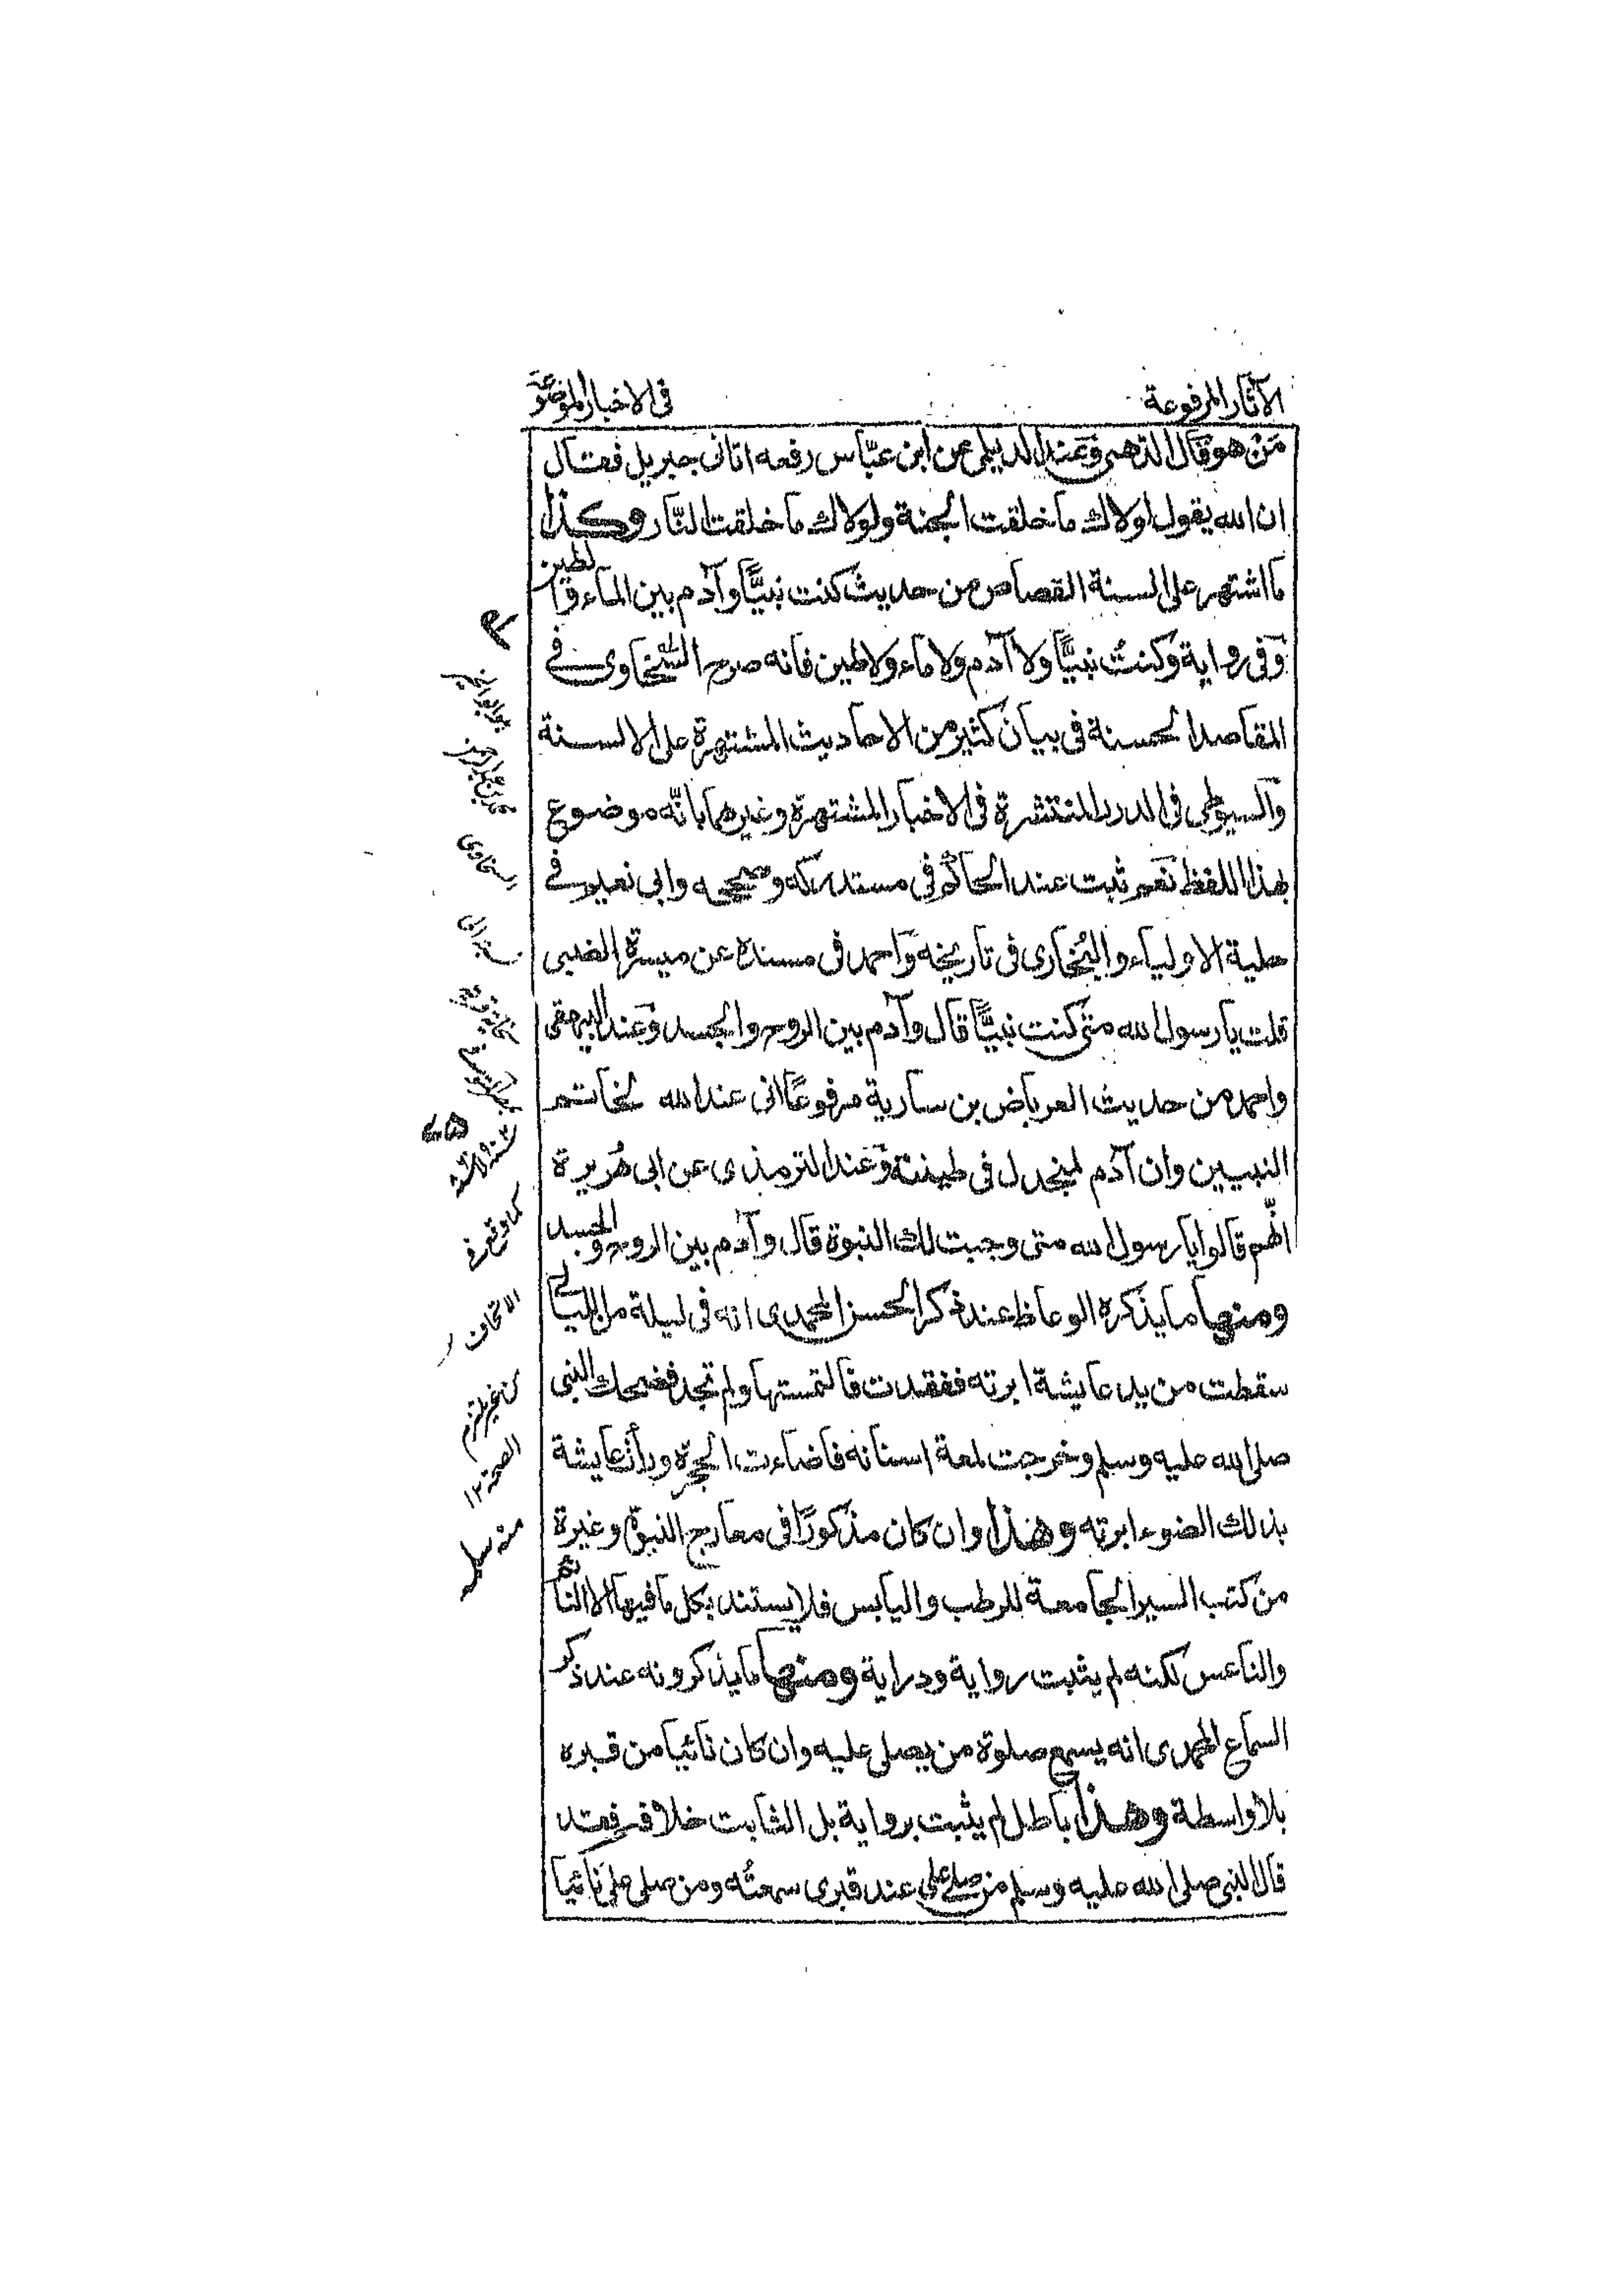 الآثار المرفوعة
في الاخبار الموضوعة
مَنْ هو قَال الذهبى وَعند الديلمى عن ابن عبّاس رفعه اتانى جبريل فقال
ان الله يقول لولاك ما خلقت الجنة ولولاك ما خلقت النّار وكذا
ما اشتهر على السنة القصاص من حديث كنت نبيًّا وآدم بين الماء والطين
وَفى رواية وكنتُ نبيًّا ولا آدم ولا ماء ولا طين فانه صرح السّخاوى فى
المقاصد الحسنة فى بيان كثير من الاحاديث المشتهرة على الالسنة
وَالسيوطى فى الدرر المنتثرة فى الاخبار المشتهرة وغيرهما بانّه موضوع
بهذا اللفظ نَعم ثبت عند الحاكم فى مستدركه وصححه وابى نعيم فى
حلية الاولياء والبُخارى فى تاريخه وَاحمد فى مسنده عن ميسرة الضبى
قلت يا رسول الله متى كنت نبيًّا قال وآدم بين الروح والجسد وَعند البيهقى
واحمد من حديث العرباض بن سارية مرفوعًا انى عند الله لخاتم
النبيين وان آدم لمنجدل فى طينته وَعند الترمذى عن ابى هُريرة
انّهم قالوا يا رسول الله متى وجبت لك النبوة قال وآدم بين الروح والجسد
ومنها ما يذكره الوعاظ عند ذكر الحسن المحمدى انه فى ليلة من الليالى
سقطت من يد عايشة ابرته ففقدت فالتمستها ولم تجد فضحك النبى
صلى الله عليه وسلم وخرجت لمعة اسنانه فاضاءت الحجرة ورأت عايشة
بذلك الضوء ابرته وهذا وان كان مذكورًا فى معارج النبوّة وغيرة
من كتب السير الجامعة للرطب واليابس فلا يستند بكل ما فيها الا النائم
والناعس لكنه لم يثبت رواية ودراية ومنها ما يذكرونه عند ذكر
السماع المحمدى انه يسمع صلوة من يصلى عليه وان كان نائيا من قبره
بلا واسطة وهذا باطل لم يثبت برواية بل الثابت خلافه فقد
قال النبى صلى الله عليه وسلم من صلى على عند قبرى سمعتُه ومن صلى على نائيا
هو ابو الخير
محمد بن عبد الرحمن
السخاوى
كما وقع فى
الاتحاف
من غير ملتزم
الصحة ١٢
منه سلمه